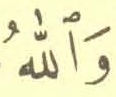 وَٱللَّٰهُ